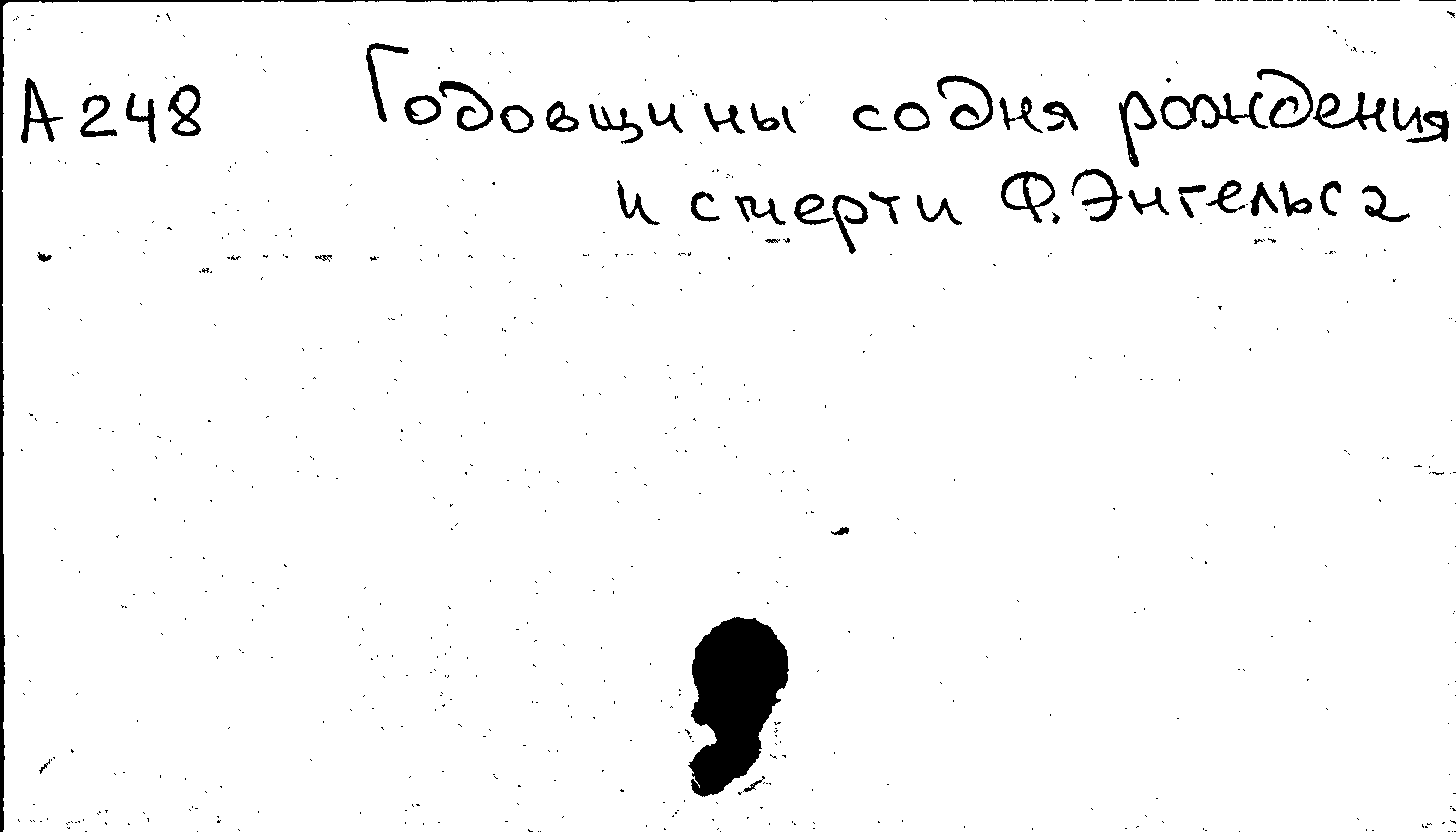 А248 Годовщины со дня рождения
и смерти Ф. Энгельса